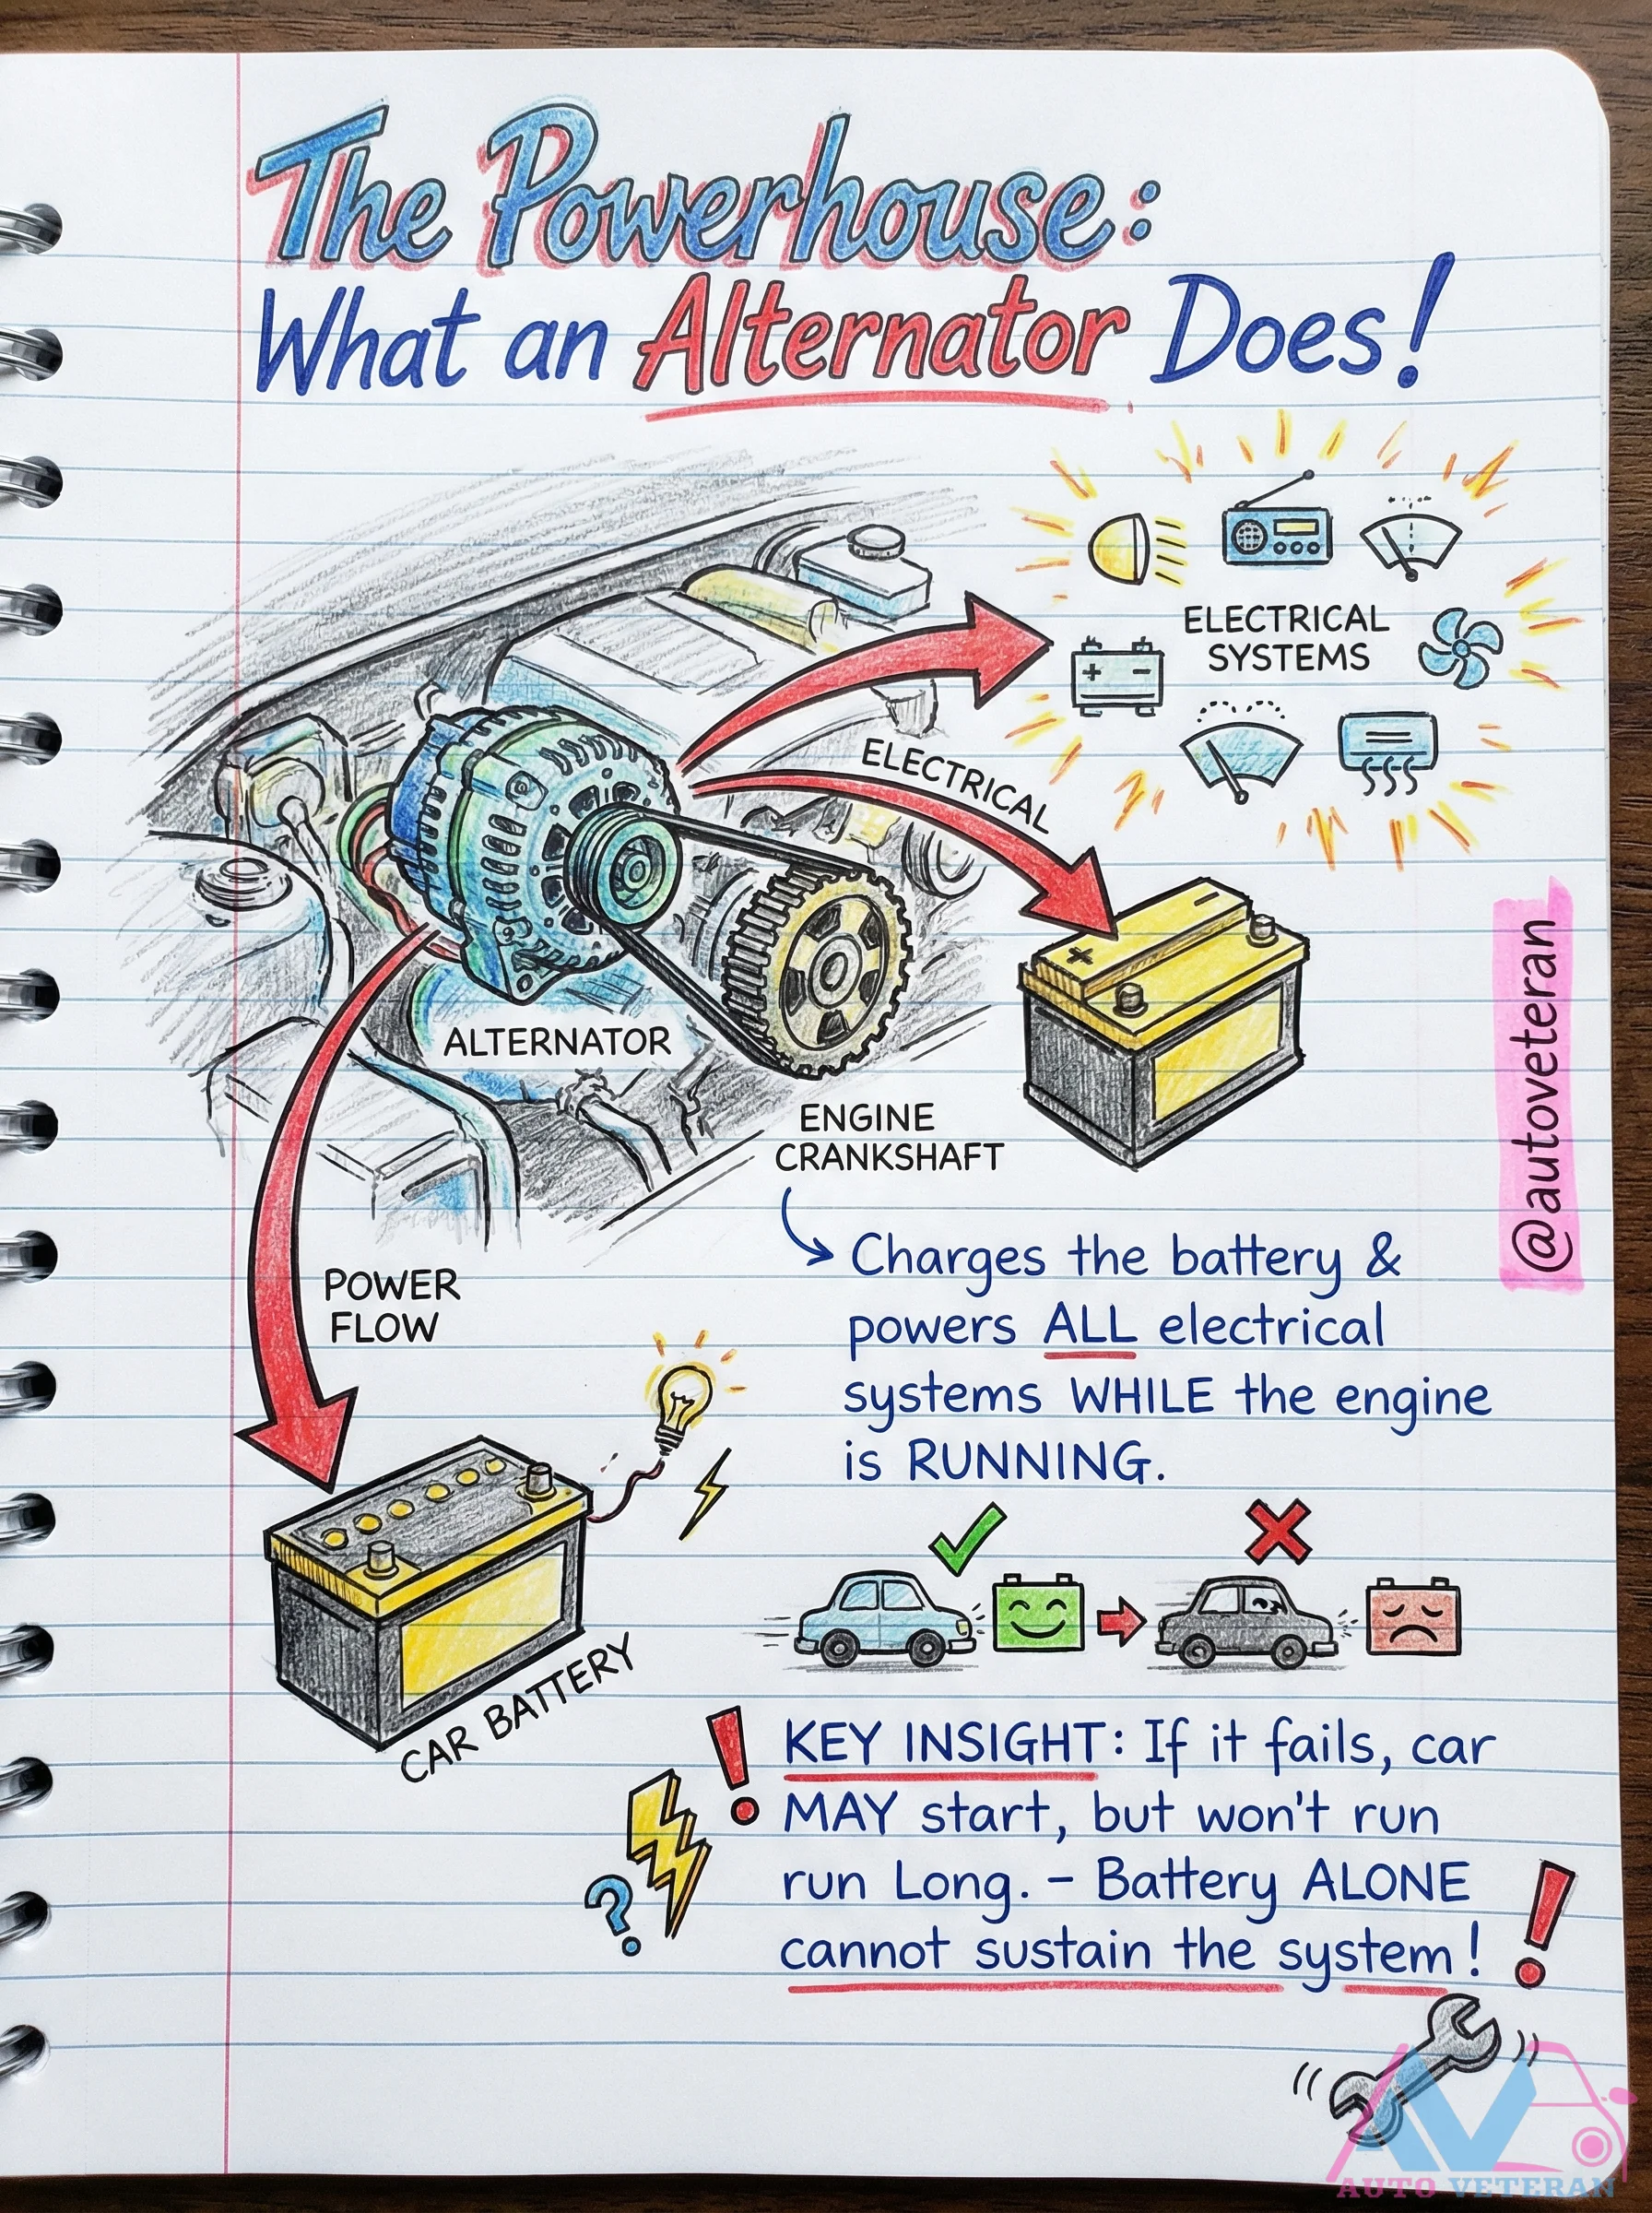 The Powerhouse:
What an Alternator Does!
ELECTRICAL
SYSTEMS
+ -
ELECTRICAL
+ -
ALTERNATOR
ENGINE
CRANKSHAFT
@autoveteran
Charges the battery &
powers ALL electrical
systems WHILE the engine
is RUNNING.
POWER
FLOW
CAR BATTERY
KEY INSIGHT: If it fails, car
MAY start, but won't run
run Long. - Battery ALONE
cannot sustain the system!
?
AV
AUTO VETERAN